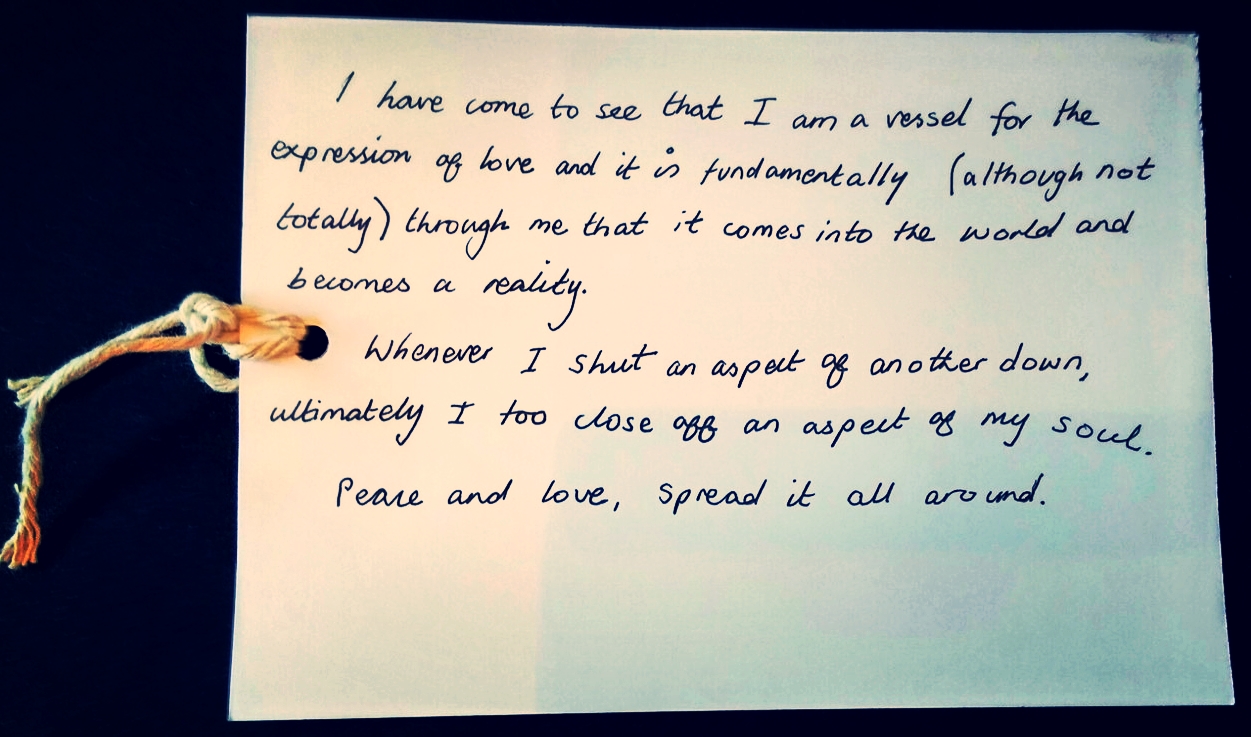 I have come to see that I am a vessel for the
expression of love and it is fundamentally (although not
totally) through me that it comes into the world and
becomes a reality.
Whenever I shut an aspect of another down,
ultimately I too close off an aspect of my soul.
Peace and love, spread it all around.